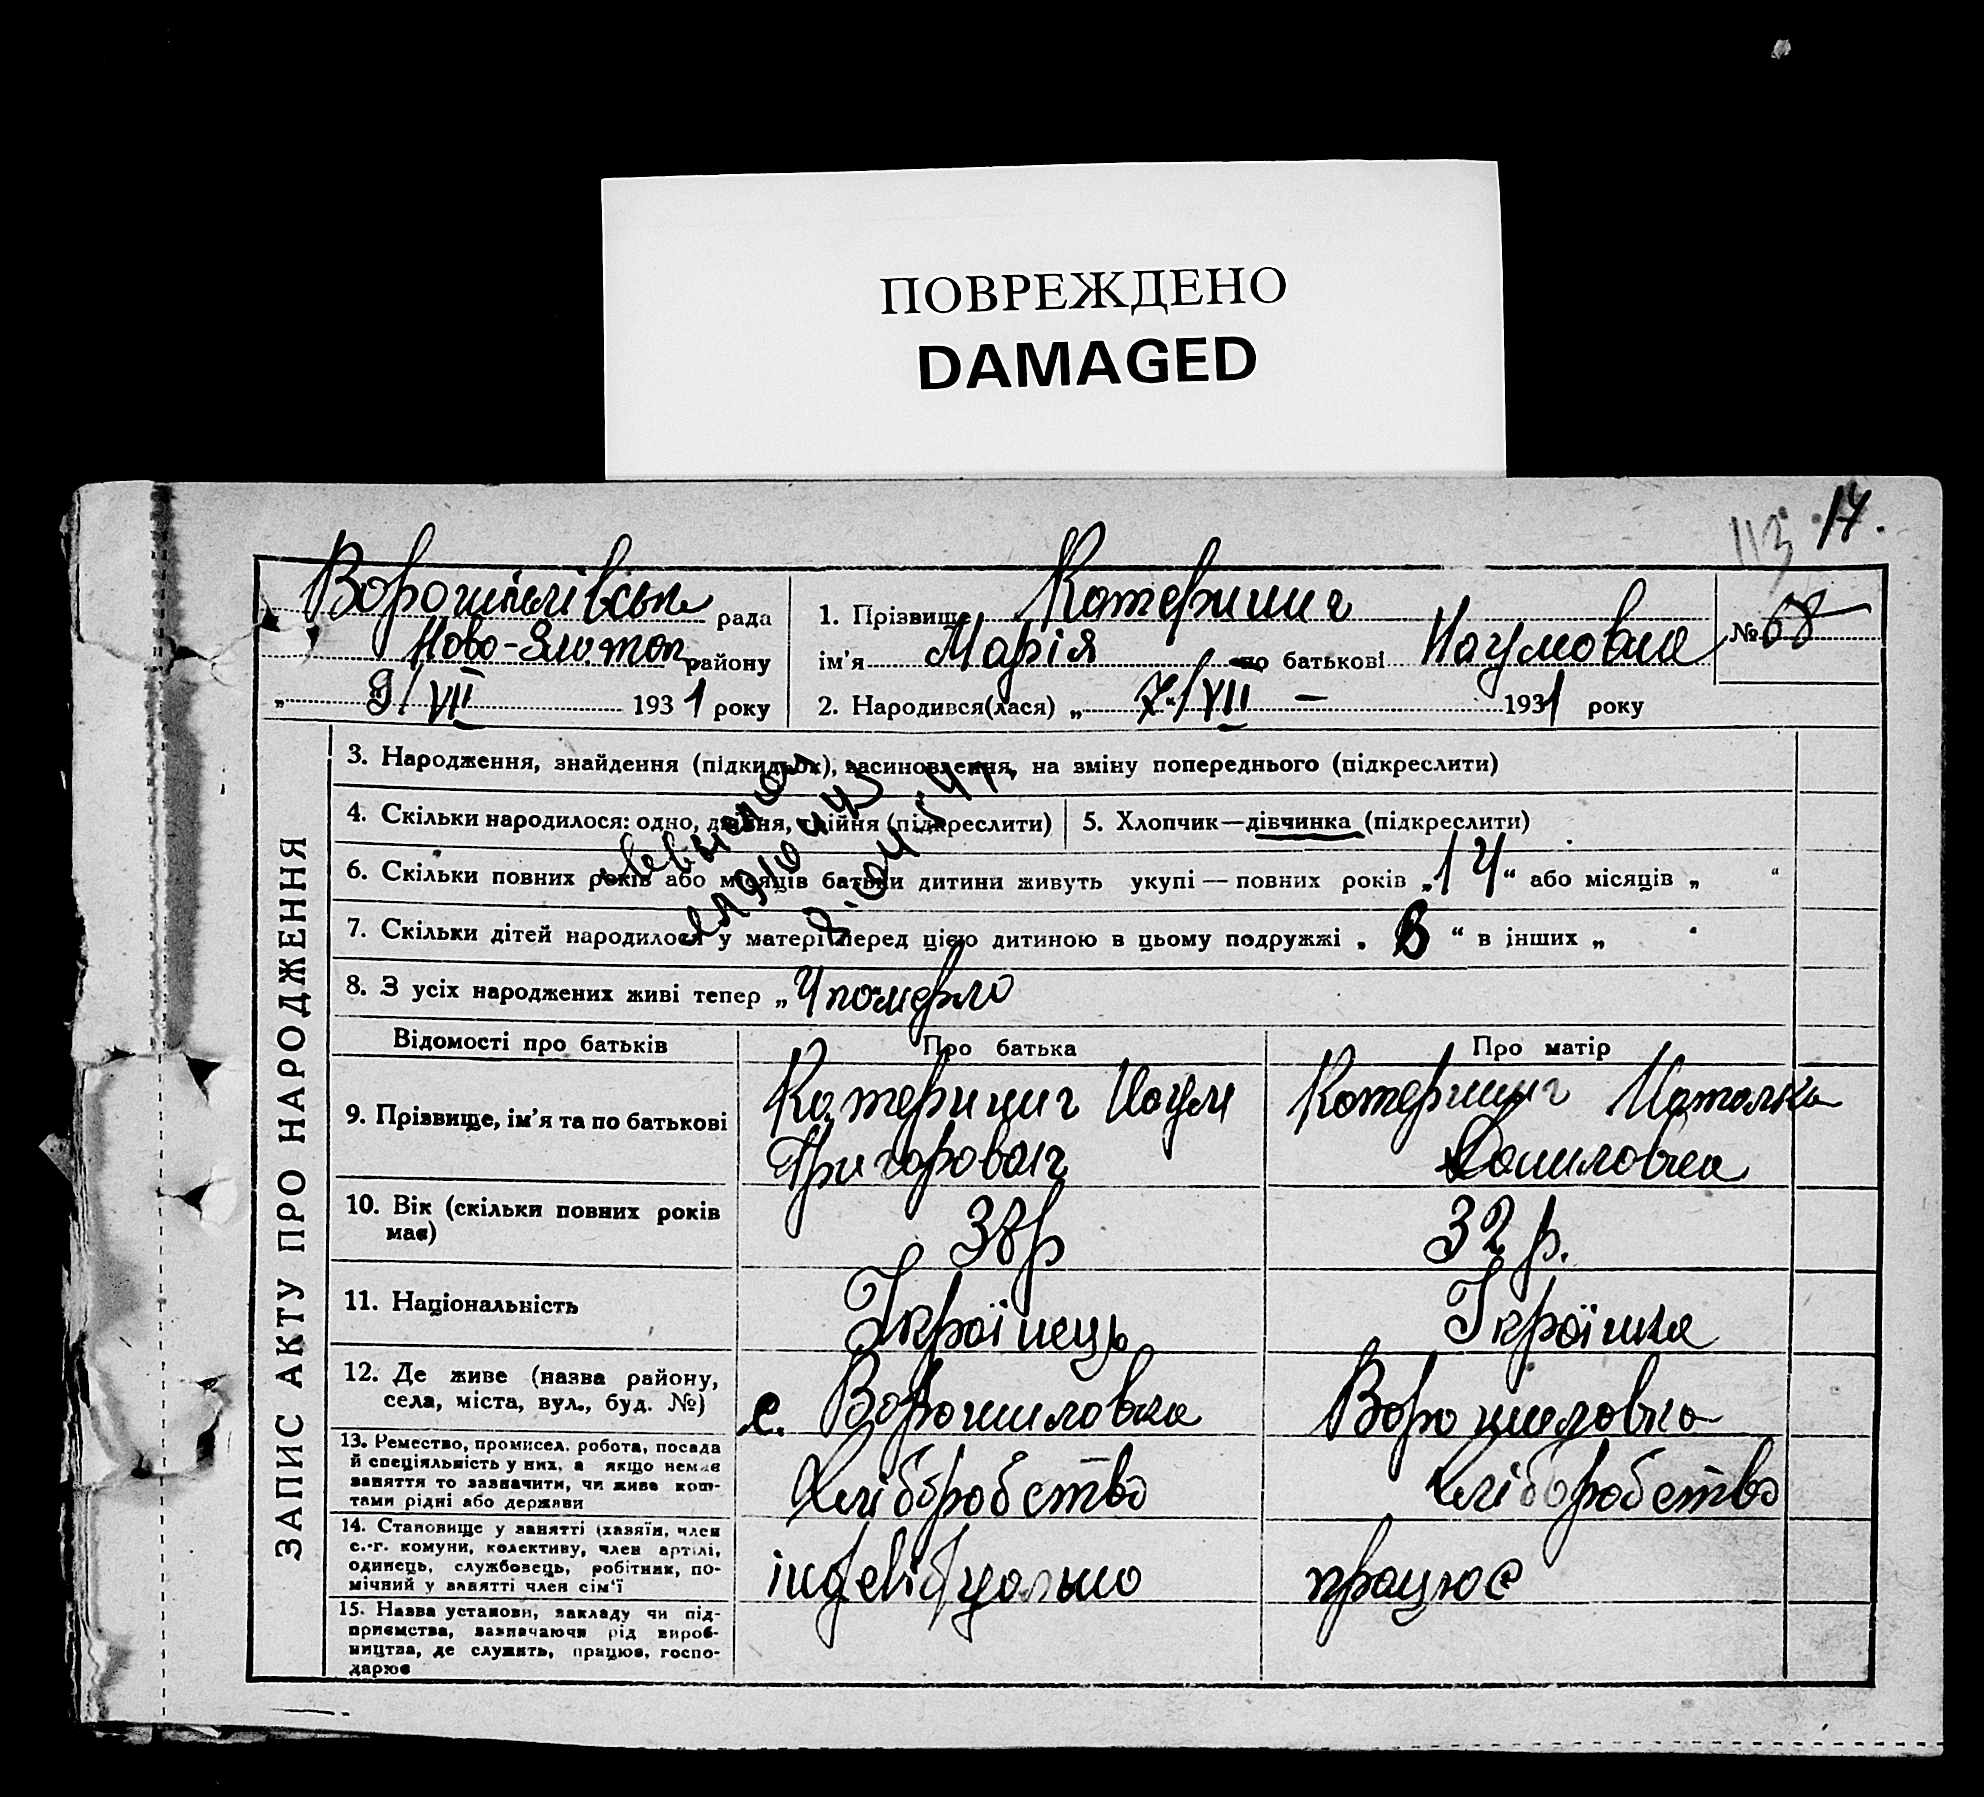 ПОВРЕЖДЕНО
DAMAGED
113 17.
Ворошилівська рада
Ново-Златоп. району
„ 9/VII 1931 року
1. Прізвище Катеринич
ім'я Марія по батькові Наумовна
№ 68
2. Народився(лася) „ 7/VII – 1931 року
ЗАПИС АКТУ ПРО НАРОДЖЕННЯ
3. Народження, знайдення (підкидьок), засиновлення, на зміну попереднього (підкреслити)
4. Скільки народилося: одно, двійня, трійня (підкреслити)
5. Хлопчик—дівчинка (підкреслити)
6. Скільки повних років або місяців батьки дитини живуть укупі — повних років „14“ або місяців „ “
7. Скільки дітей народилося у матері перед цією дитиною в цьому подружжі „ “ в інших „ “
8. З усіх народжених живі тепер „ 4 померло
Відомості про батьків
Про батька
Про матір
9. Прізвище, ім'я та по батькові
Катеринич Наум
Григорович
Катеринич Наталка
Даниловна
10. Вік (скільки повних років
має)
38р
32 р.
11. Національність
Українець
Українка
12. Де живе (назва району,
села, міста, вул., буд. №)
с. Ворошиловка
Ворошиловка
13. Ремество, промисел, робота, посада
й спеціяльність у них, а якщо немає
заняття то зазначити, чи живе кош-
тами рідні або держави
Хліборобство
Хліборобство
14. Становище у занятті (хазяїн, член
с.-г. комуни, колективу, член артілі,
одинець, службовець, робітник, по-
мічний у занятті член сім'ї
індевідуально
працює
15. Назва установи, закладу чи під-
приємства, зазначаючи рід вироб-
ництва, де служить, працює, госпо-
дарює